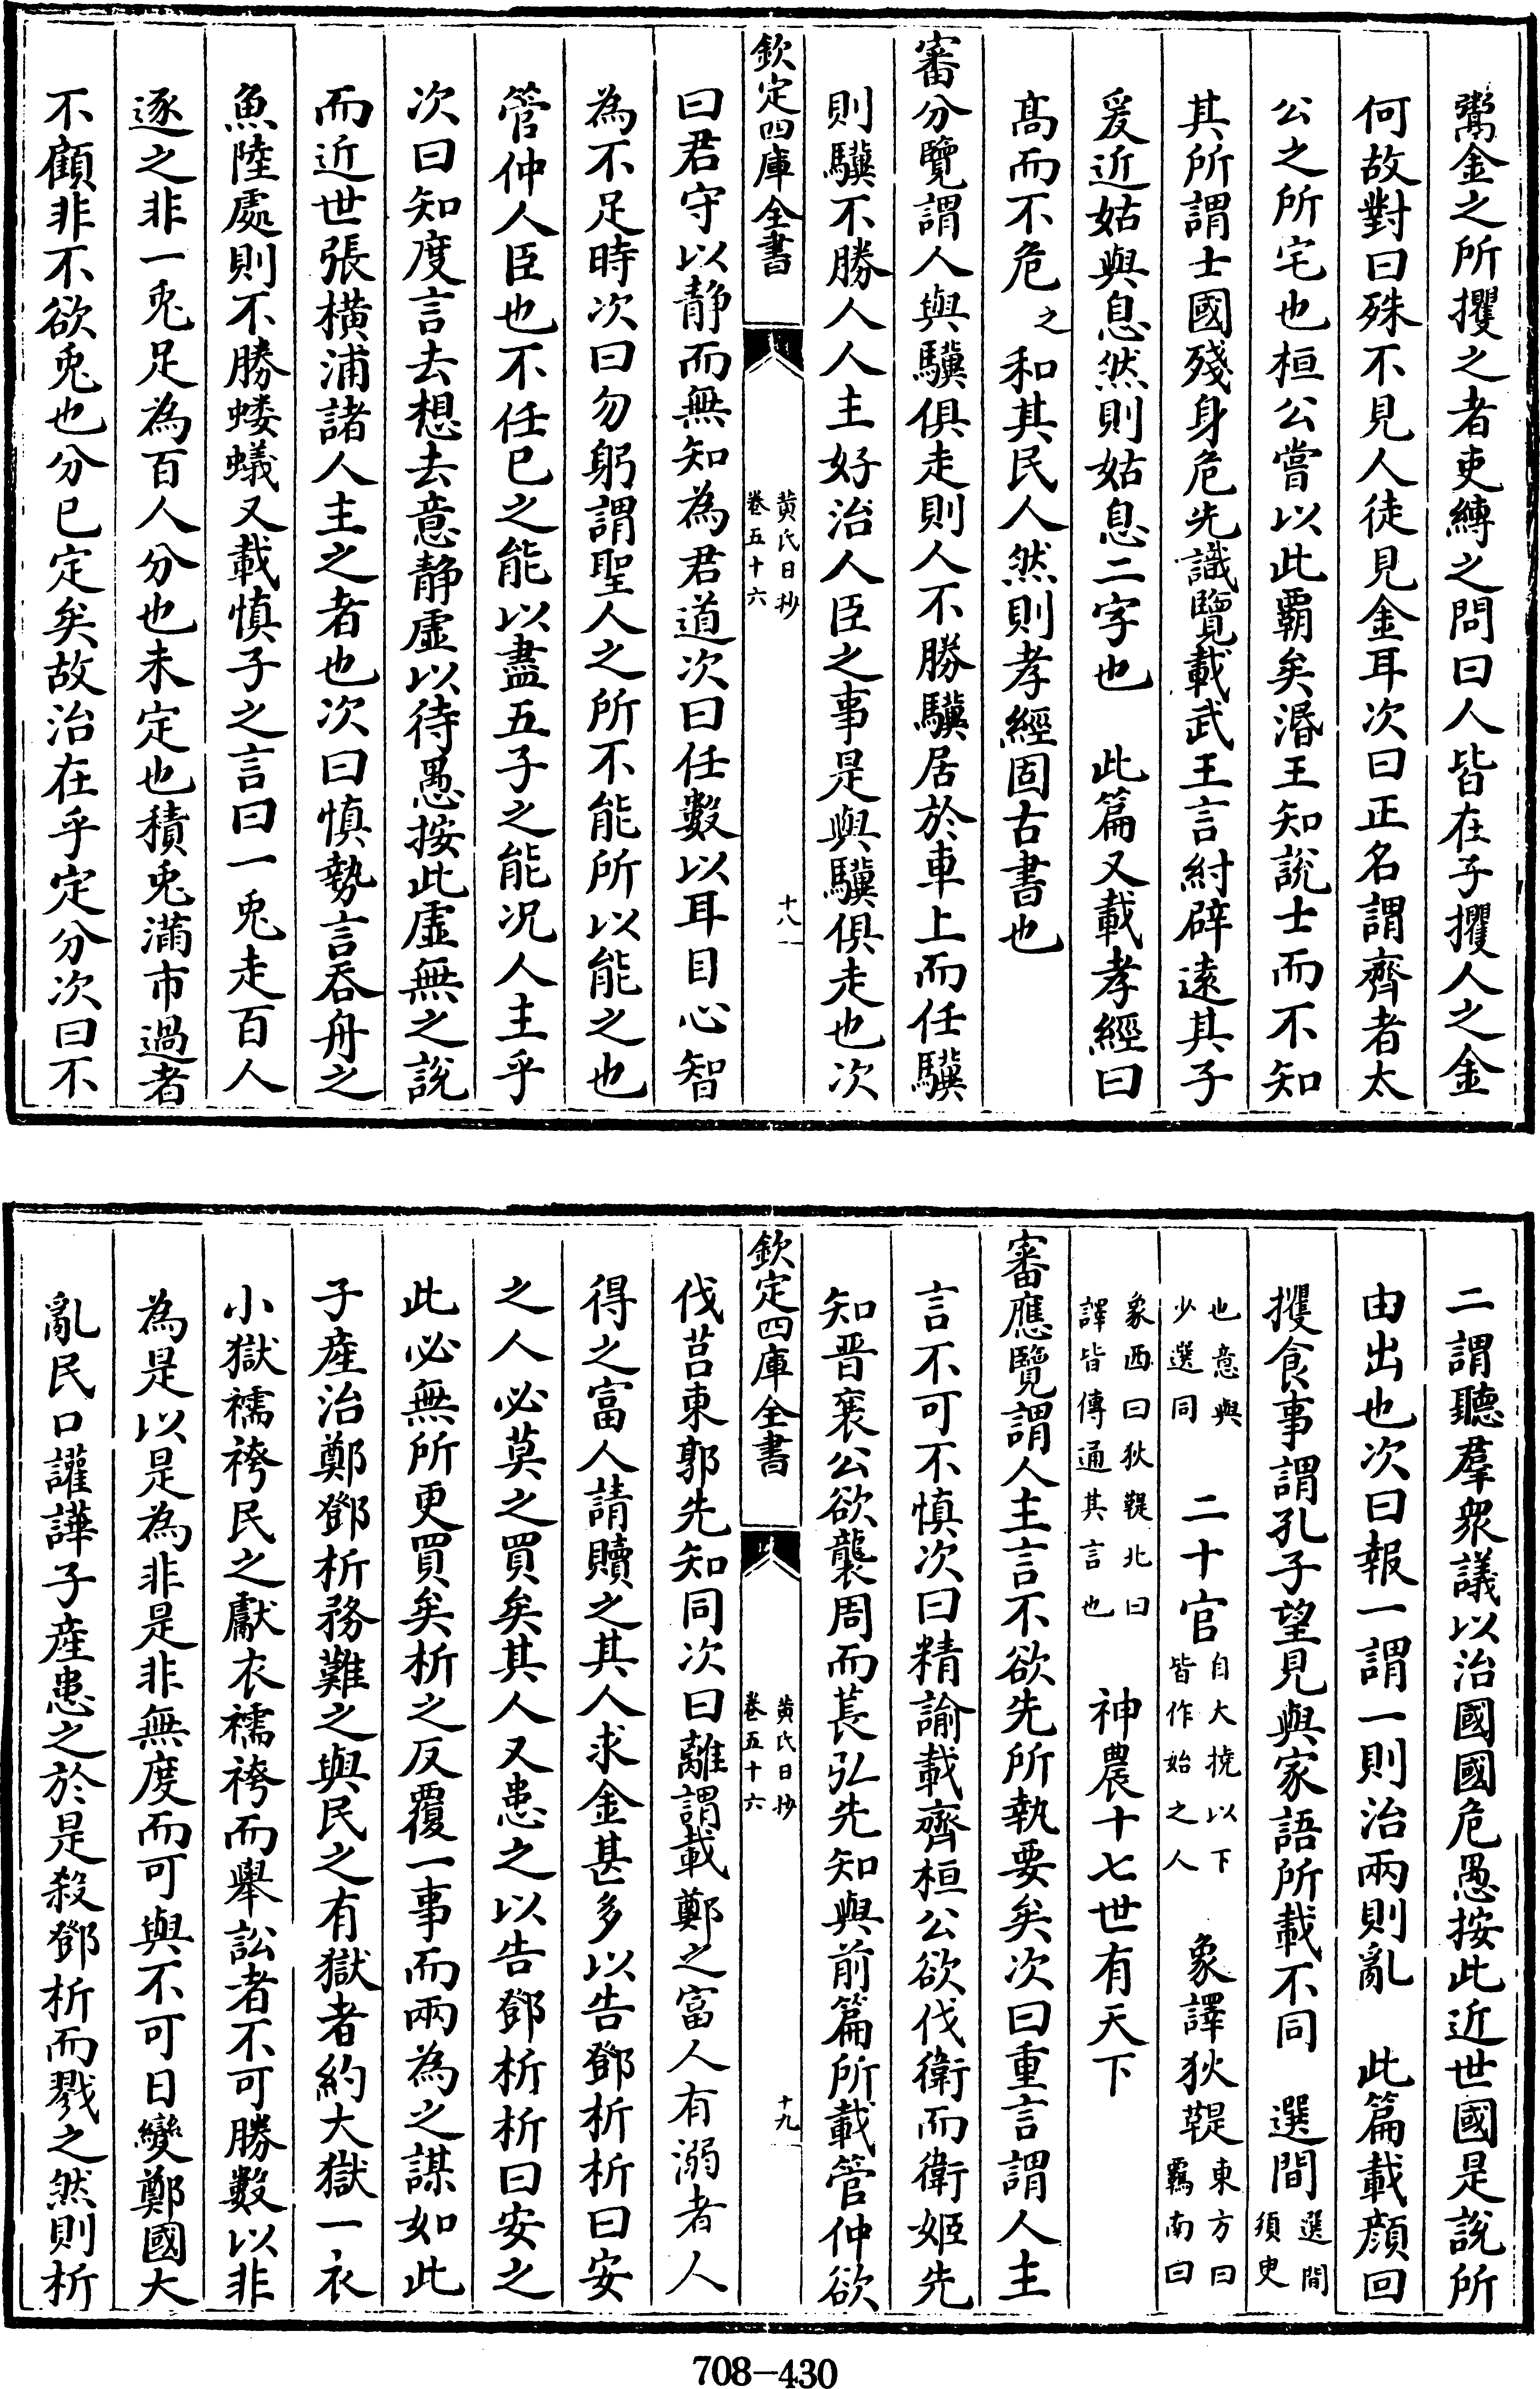 鬻金之所攫之者吏縛之問曰人皆在子攫人之金
何故對曰殊不見人徒見金耳次曰正名謂齊者太
公之所宅也桓公嘗以此霸矣湣王知說士而不知
其所謂士國殘身危先識覽載武王言紂辟遠其子
爰近姑與息然則姑息二字也　此篇又載孝經曰
髙而不危之和其民人然則孝經固古書也
審分覽謂人與驥俱走則人不勝驥居於車上而任驥
則驥不勝人人主好治人臣之事是與驥俱走也次
欽定四庫全書
黄氏日抄
卷五十六
十八
曰君守以静而無知為君道次曰任數以耳目心智
為不足時次曰勿躬謂聖人之所不能所以能之也
管仲人臣也不任已之能以盡五子之能况人主乎
次曰知度言去想去意静虛以待愚按此虛無之說
而近世張横浦諸人主之者也次曰慎勢言吞舟之
魚陸處則不勝螻蟻又載慎子之言曰一兎走百人
逐之非一兎足為百人分也未定也積兎滿市過者
不顧非不欲兎也分已定矣故治在乎定分次曰不
二謂聽羣衆議以治國國危愚按此近世國是說所
由出也次曰報一謂一則治兩則亂　此篇載顔回
攫食事謂孔子望見與家語所載不同　選間選間須臾
也意與少選同　二十官自大撓以下皆作始之人　象譯狄鞮東方曰羈南曰
象西曰狄鞮北曰譯皆傳通其言也　神農十七世有天下
審應覽謂人主言不欲先所執要矣次曰重言謂人主
言不可不慎次曰精諭載齊桓公欲伐衛而衛姬先
知晋襄公欲襲周而萇弘先知與前篇所載管仲欲
欽定四庫全書
黄氏日抄
卷五十六
十九
伐莒東郭先知同次曰離謂載鄭之富人有溺者人
得之富人請贖之其人求金甚多以告鄧析析曰安
之人必莫之買矣其人又患之以告鄧析析曰安之
此必無所更買矣析之反覆一事而兩為之謀如此
子産治鄭鄧析務難之與民之有獄者約大獄一衣
小獄襦袴民之獻衣襦袴而舉訟者不可勝數以非
為是以是為非是非無度而可與不可日變鄭國大
亂民口讙譁子産患之於是殺鄧析而戮之然則析
708-430